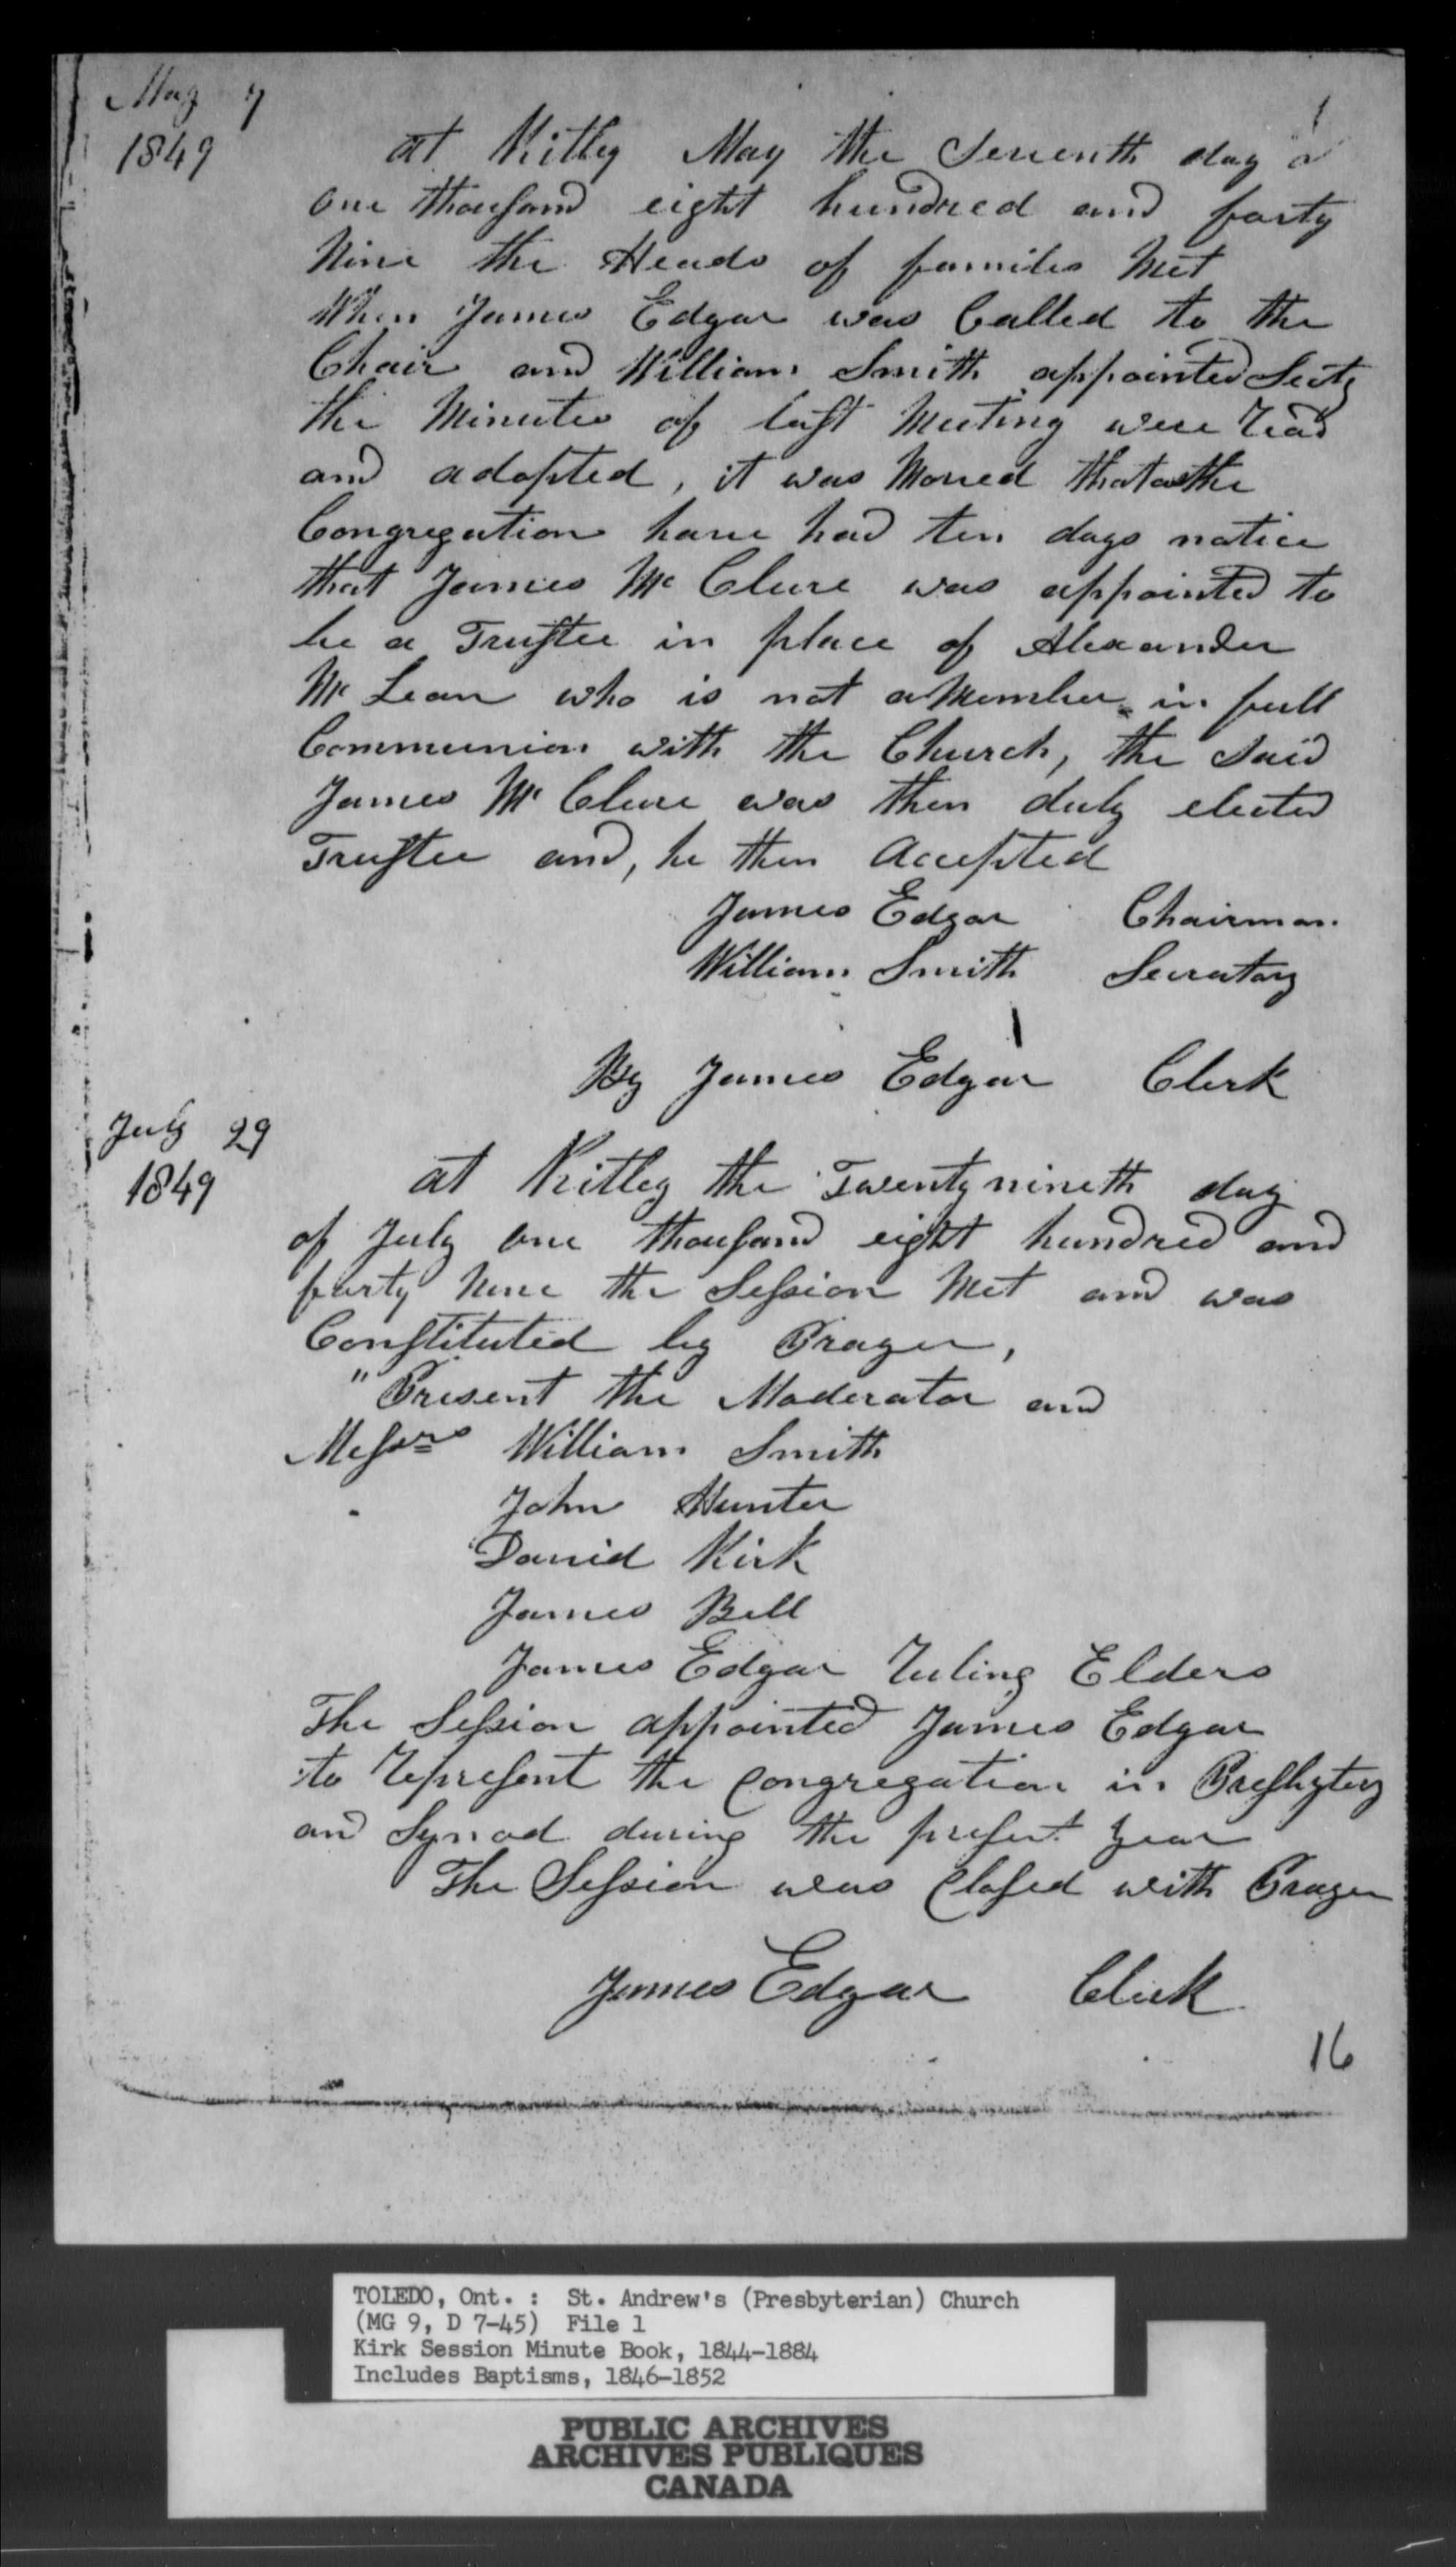 May 7
1849
at Kitley May the Seventh day
one thousand eight hundred and forty
Nine the Heads of families Met
When James Edgar was Called to the
Chair and William Smith appointed Secty
the Minutes of last Meeting were read
and adopted, it was Moved that as the
Congregation have had ten days notice
that James Mc Clure was appointed to
be a Trustee in place of Alexander
Mc Lean who is not a Member in full
Communion with the Church, the Said
James Mc Clure was then duly elected
Trustee and, he then Accepted
James Edgar Chairman
William Smith Secratary
By James Edgar Clerk
July 29
1849
at Kitley the Twenty nineth day
of July one thousand eight hundred and
forty Nine the Session Met and was
Constituted by Prayer,
" Present the Moderator and
Messrs William Smith
John Hunter
David Kirk
James Bell
James Edgar Ruling Elders
The Session appointed James Edgar
to Represent the Congregation in Presbytery
and Synod during the present year
The Session was Closed with Prayer
James Edgar Clerk
16
TOLEDO, Ont. : St. Andrew's (Presbyterian) Church
(MG 9, D 7-45) File 1
Kirk Session Minute Book, 1844-1884
Includes Baptisms, 1846-1852
PUBLIC ARCHIVES
ARCHIVES PUBLIQUES
CANADA